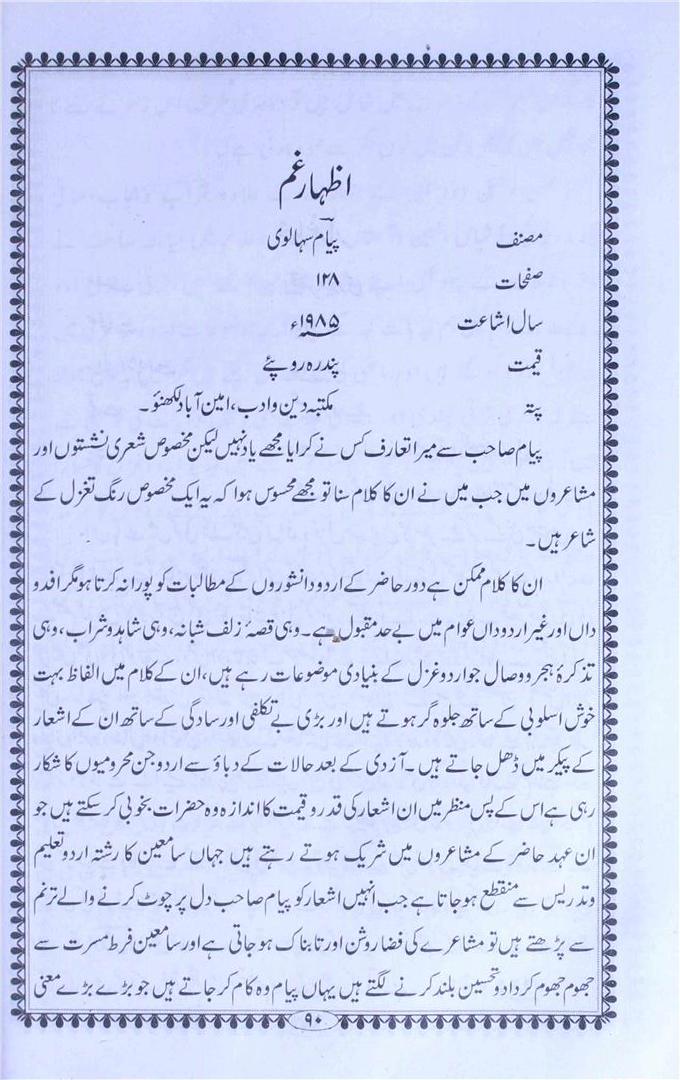 اظہار غم
مصنف پیام سہالوی
صفحات ۱۲۸
سال اشاعت ۱۹۸۵ء
قیمت پندرہ روپئے
پتہ مکتبہ دین و ادب، امین آباد لکھنؤ۔
پیام صاحب سے میرا تعارف کس نے کرایا مجھے یاد نہیں لیکن مخصوص شعری نشستوں اور
مشاعروں میں جب میں نے ان کا کلام سنا تو مجھے محسوس ہوا کہ یہ ایک مخصوص رنگ تغزل کے
شاعر ہیں۔
ان کا کلام ممکن ہے دور حاضر کے اردو دانشوروں کے مطالبات کو پورا نہ کرتا ہو مگر افدو
داں اور غیر اردو داں عوام میں بے حد مقبول ہے۔ وہی قصۂ زلف شانہ، وہی شاہد و شراب، وہی
تذکرۂ ہجر و وصال جو اردو غزل کے بنیادی موضوعات رہے ہیں، ان کے کلام میں الفاظ بہت
خوش اسلوبی کے ساتھ جلوہ گر ہوتے ہیں اور بڑی بے تکلفی اور سادگی کے ساتھ ان کے اشعار
کے پیکر میں ڈھل جاتے ہیں۔ آزدی کے بعد حالات کے دباؤ سے اردو جن محرومیوں کا شکار
رہی ہے اس کے پس منظر میں ان اشعار کی قدر و قیمت کا اندازہ وہ حضرات بخوبی کر سکتے ہیں جو
ان عہد حاضر کے مشاعروں میں شریک ہوتے رہتے ہیں جہاں سامعین کا رشتہ اردو تعلیم
و تدریس سے منقطع ہو جاتا ہے جب انہیں اشعار کو پیام صاحب دل پر چوٹ کرنے والے ترنم
سے پڑھتے ہیں تو مشاعرے کی فضا روشن اور تابناک ہو جاتی ہے اور سامعین فرط مسرت سے
جھوم جھوم کر داد و تحسین بلند کرنے لگتے ہیں یہاں پیام وہ کام کر جاتے ہیں جو بڑے بڑے معنی
۹۰